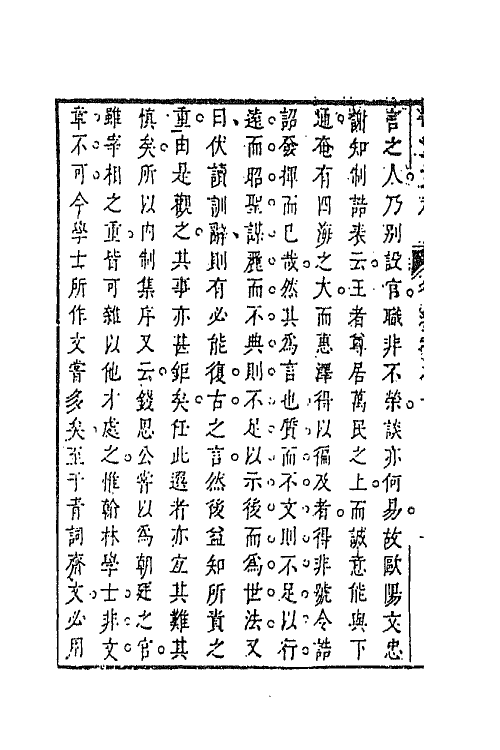 言之人乃別設官職非不榮談亦何易故歐陽文忠
謝知制誥表云王者尊居萬民之上而誠意能與下
通奄有四海之大而惠澤得以徧及者得非號令誥
詔發揮而已哉然其為言也質而不文則不足以行
遠而昭聖謀麗而不典則不足以示後而為世法又
曰伏讀訓辭則有必能復古之言然後益知所責之
重由是觀之其事亦甚鉅矣任此選者亦宜其難其
慎矣所以內制集序又云錢思公嘗以為朝廷之官
雖宰相之重皆可雜以他才處之惟翰林學士非文
章不可今學士所作文書多矣至于青詞齋文必用